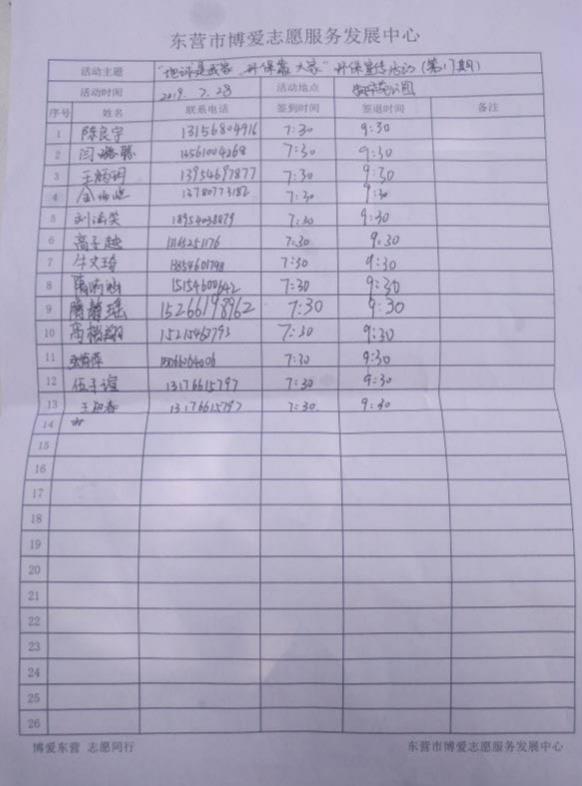 东营市博爱志愿服务发展中心
活动主题 "地球是我家 环保靠大家" 环保宣传活动 (第17期)
活动时间 2019.7.28 活动地点 公园
序号 姓名 联系电话 签到时间 签退时间 备注
1 陈良宇 13156804916 7:30 9:30
2 闫 7:30 9:30
3 王 13954697877 7:30 9:30
4 13780773182 7:30 9:30
5 刘 18954038879 7:30 9:30
6 高子越 7:30 9:30
7 牛文琦 7:30 9:30
8 15154600642 7:30 9:30
9 瑶 15266198962 7:30 9:30
10 7:30 9:30
11 7:30 9:30
12 伍子谊 13176615797 7:30 9:30
13 王 13176615797 7:30 9:30
14
15
16
17
18
19
20
21
22
23
24
25
26
博爱东营 志愿同行 东营市博爱志愿服务发展中心